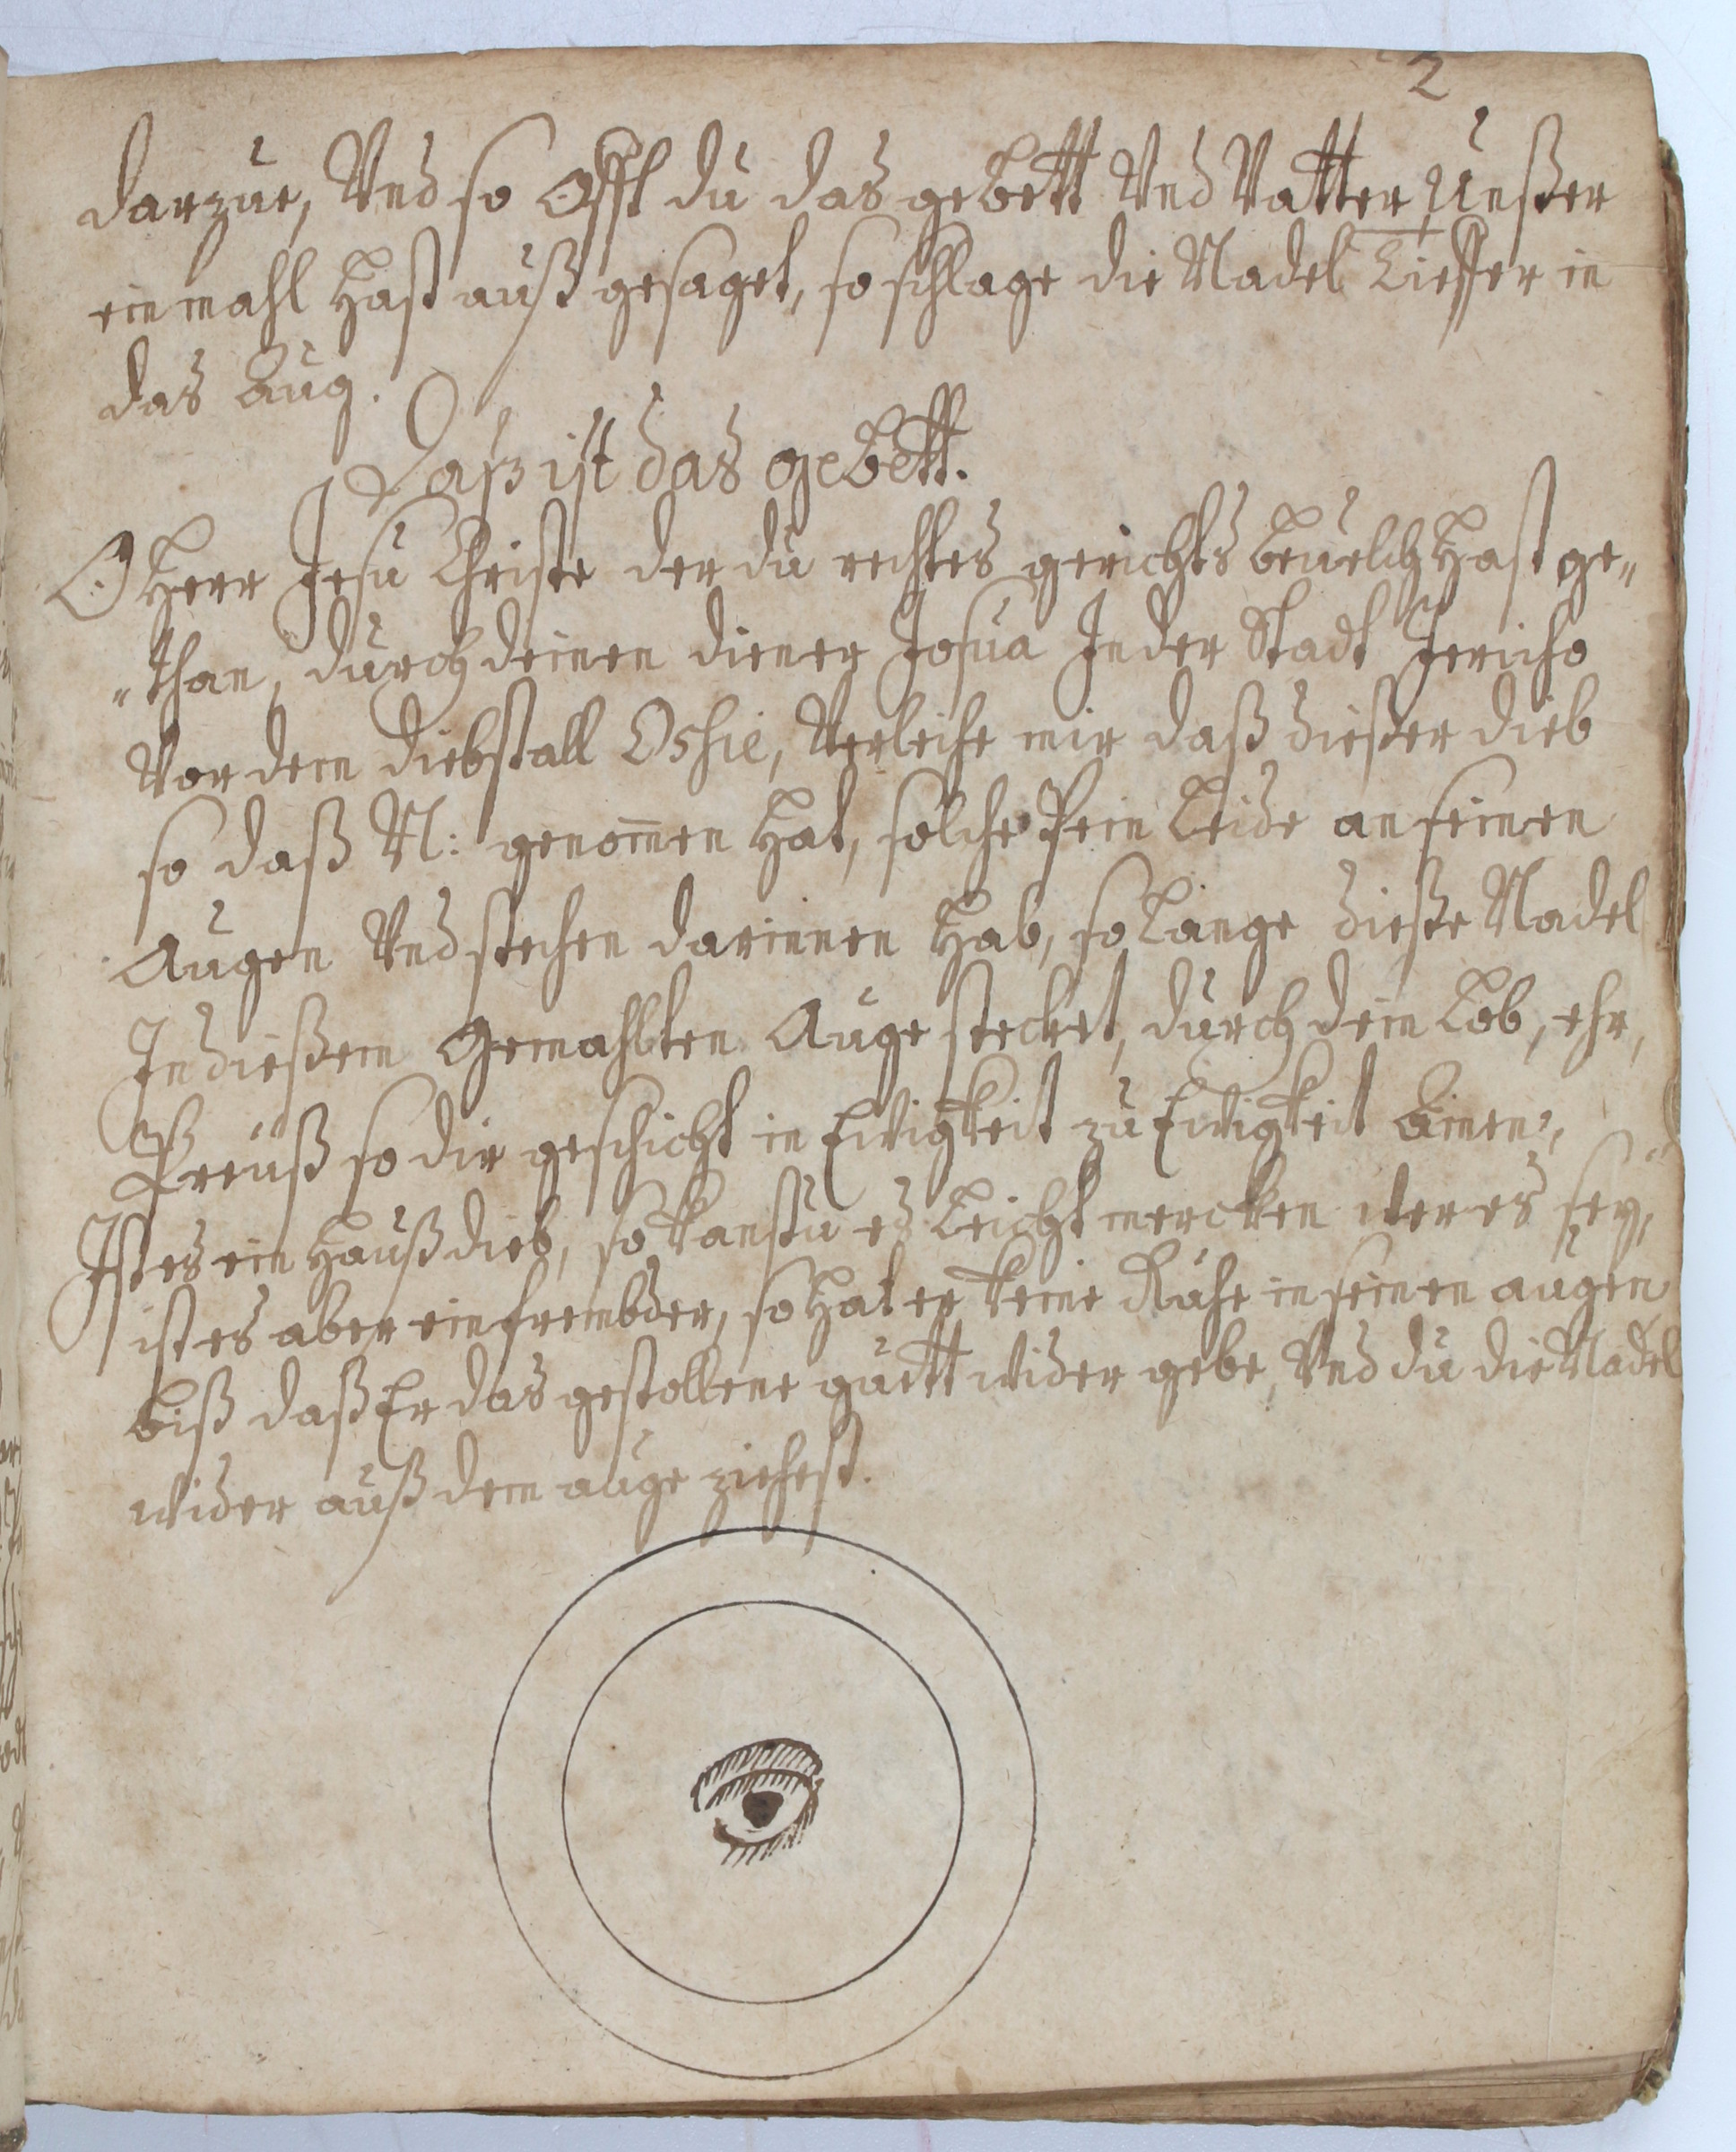 2
darzue, Vnd so Offt du das gebett Vnd Vatter Unßer
ein mahl Hast auß gesaget, so schlage die Nadel tieffer in
das Aug.
Daß ist das gebett.
O Herr Jesu Christe der du rechtes gerichts beuelch Hast ge„
„than, durch deinen diener Josua In der Stadt Jericho
Vor dem diebstall Oshie, Verleihe mir daß dießer dieb
so daß N: genom̄en Hat, solche Pein Leide an seinen
Augen Vnd stechen darinnen Hab, so Lange dieße Nadel
In dießem Gemahlten Auge stecket, durch dein Lob, ehr,
Preüß so dir geschicht in Ewigkeit zu Ewigkeit Amen,
Ist es ein Haußdieb, so kanstu es Leicht mercken wer es sey,
ist es aber ein frembder, so Hat er keine Ruhe in seinen augen
biß daß Er das gestollene guett wider gebe, Vnd du die Nadel
wider auß dem auge ziehest.